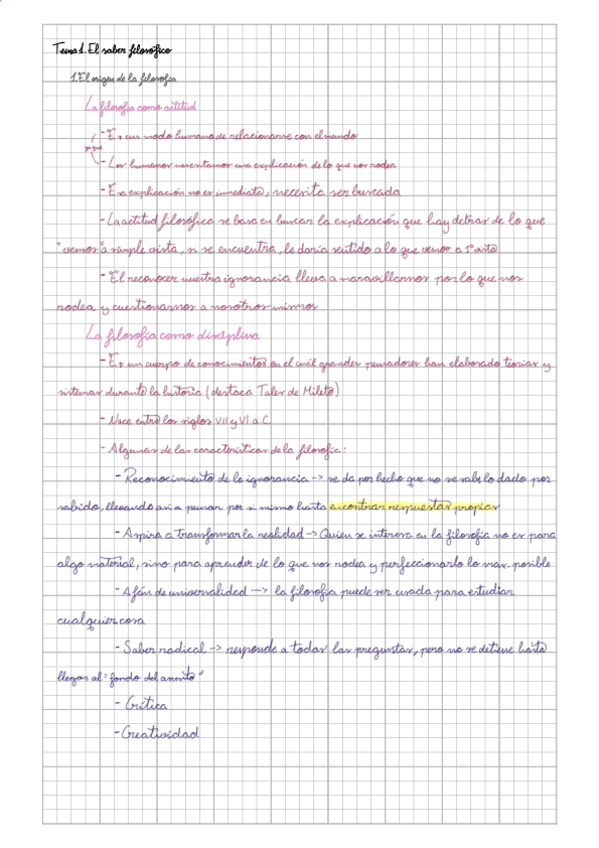 Tema 1. El saber filosófico
1. El origen de la filosofía
La filosofía como actitud
- Es un modo humano de relacionarse con el mundo
- Los humanos necesitamos una explicación de lo que nos rodea
- Esa explicación no es inmediata, necesita ser buscada
- La actitud filosófica se basa en buscar la explicación que hay detrás de lo que
"vemos" a simple vista, si se encuentra, le daría sentido a lo que vemos a 1ª vista
- El reconocer nuestra ignorancia lleva a maravillarnos por lo que nos
rodea y cuestionarnos a nosotros mismos
La filosofía como disciplina
- Es un cuerpo de conocimientos en el cuál grandes pensadores han elaborado teorías y
sistemas durante la historia (destaca Tales de Mileto)
- Nace entre los siglos VII y VI a.C.
- Algunas de las características de la filosofía:
- Reconocimiento de la ignorancia -> se da por hecho que no se sabe lo dado por
sabido, llegando así a pensar por si mismo hasta encontrar respuestas propias
- Aspira a transformar la realidad -> Quien se interesa en la filosofía no es para
algo material, sino para aprender de lo que nos rodea y perfeccionarlo lo max. posible
- Afán de universalidad -> la filosofía puede ser usada para estudiar
cualquier cosa
- Saber radical -> responde a todas las preguntas, pero no se detiene hasta
llegar al "fondo del asunto"
- Crítica
- Creatividad